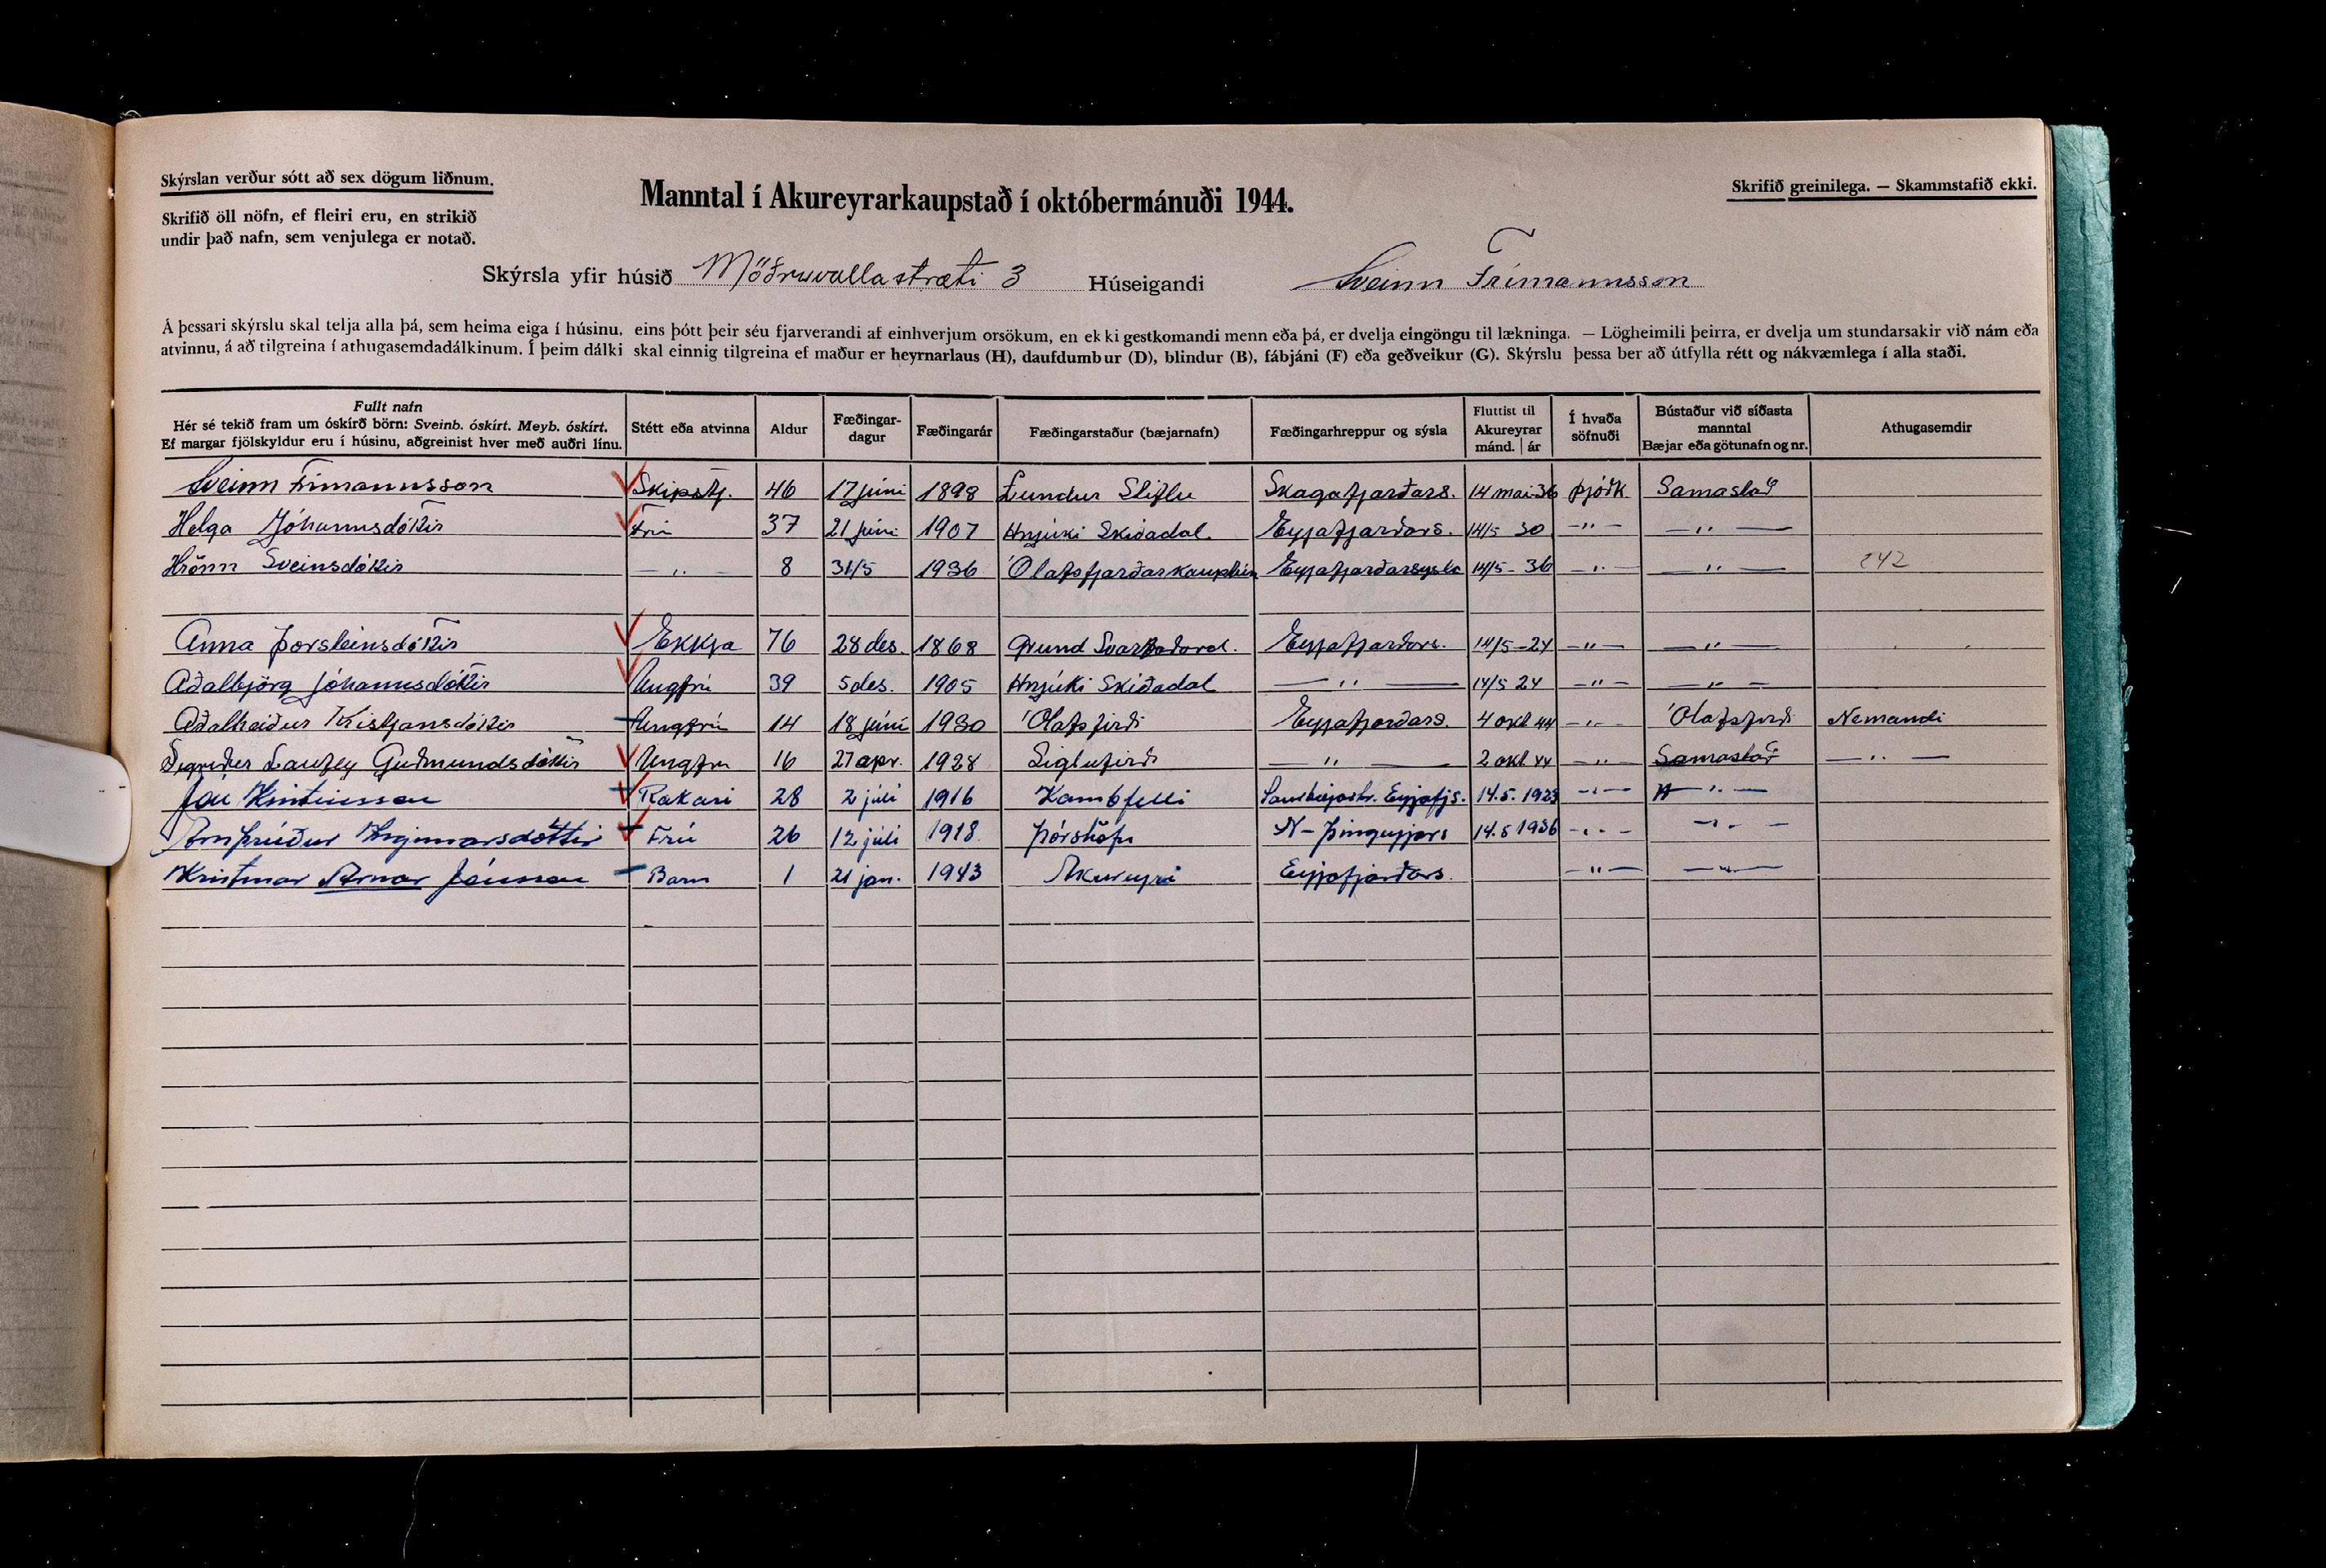 Skýrslan verður sótt að sex dögum liðnum.
Skrifið öll nöfn, ef fleiri eru, en strikið
undir það nafn, sem venjulega er notað.
Manntal í Akureyrarkaupstað í októbermánuði 1944.
Skrifið greinilega. — Skammstafið ekki.
Skýrsla yfir húsið Möðruvallastræti 3 Húseigandi Sveinn Frímannsson
Á þessari skýrslu skal telja alla þá, sem heima eiga í húsinu, eins þótt þeir séu fjarverandi af einhverjum orsökum, en ekki gestkomandi menn eða þá, er dvelja eingöngu til lækninga. — Lögheimili þeirra, er dvelja um stundarsakir við nám eða
atvinnu, á að tilgreina í athugasemdadálkinum. Í þeim dálki skal einnig tilgreina ef maður er heyrnarlaus (H), daufdumbur (D), blindur (B), fábjáni (F) eða geðveikur (G). Skýrslu þessa ber að útfylla rétt og nákvæmlega í alla staði.
Fullt nafn
Hér sé tekið fram um óskírð börn: Sveinb. óskírt. Meyb. óskírt.
Ef margar fjölskyldur eru í húsinu, aðgreinist hver með auðri línu.
Stétt eða atvinna
Aldur
Fæðingar-
dagur
Fæðingarár
Fæðingarstaður (bæjarnafn)
Fæðingarhreppur og sýsla
Fluttist til
Akureyrar
mánd. | ár
Í hvaða
söfnuði
Bústaður við síðasta
manntal
Bæjar eða götunafn og nr.
Athugasemdir
Sveinn Frímannsson Skipstj. 46 17 júni 1898 Lundur Stíflu Skagafjarðars. 14 mai 36 þjóðk. Samastað
Helga Jóhannsdóttir Frú 37 21 júni 1907 Hnjúki Skíðadal. Eyjafjarðars. 14/5 30 —„— —„—
Hrönn Sveinsdóttir —„— 8 31/5 1936 Ólafsfjarðarkaupstað Eyjafjarðarsýsla 14/5 - 36 —„— —„— 242
Anna Þorsteinsdóttir Ekkja 76 28 des. 1868 Grund Svarfaðard. Eyjafjarðars. 14/5 - 24 —„— —„—
Aðalbjörg Jóhannsdóttir Ungfrú 39 5 des. 1905 Hnjúki Skíðadal —„— 14/5 24 —„— —„—
Aðalheiður Kristjansdóttir Ungfrú 14 18 júní 1930 Ólafsfirði Eyjafjarðars. 4 okt 44 —„— Ólafsfirði Nemandi
Sigriður Laufey Guðmundsdóttir Ungfrú 16 27 apr. 1928 Siglufirði —„— 2 okt 44 —„— Samastað —„—
Jón Kristinsson Rakari 28 2 júli 1916 Kambfelli Saurbæjarhr. Eyjafjs. 14.5. 1923 —„— —„—
Arnþrúður Ingimarsdóttir Frú 26 12 júli 1918 Þórshöfn N-Þingeyjars 14.5 1936 —„— —„—
Kristmar Arnar Jónsson Barn 1 21 jan. 1943 Akureyri Eyjafjarðars. —„— —„—